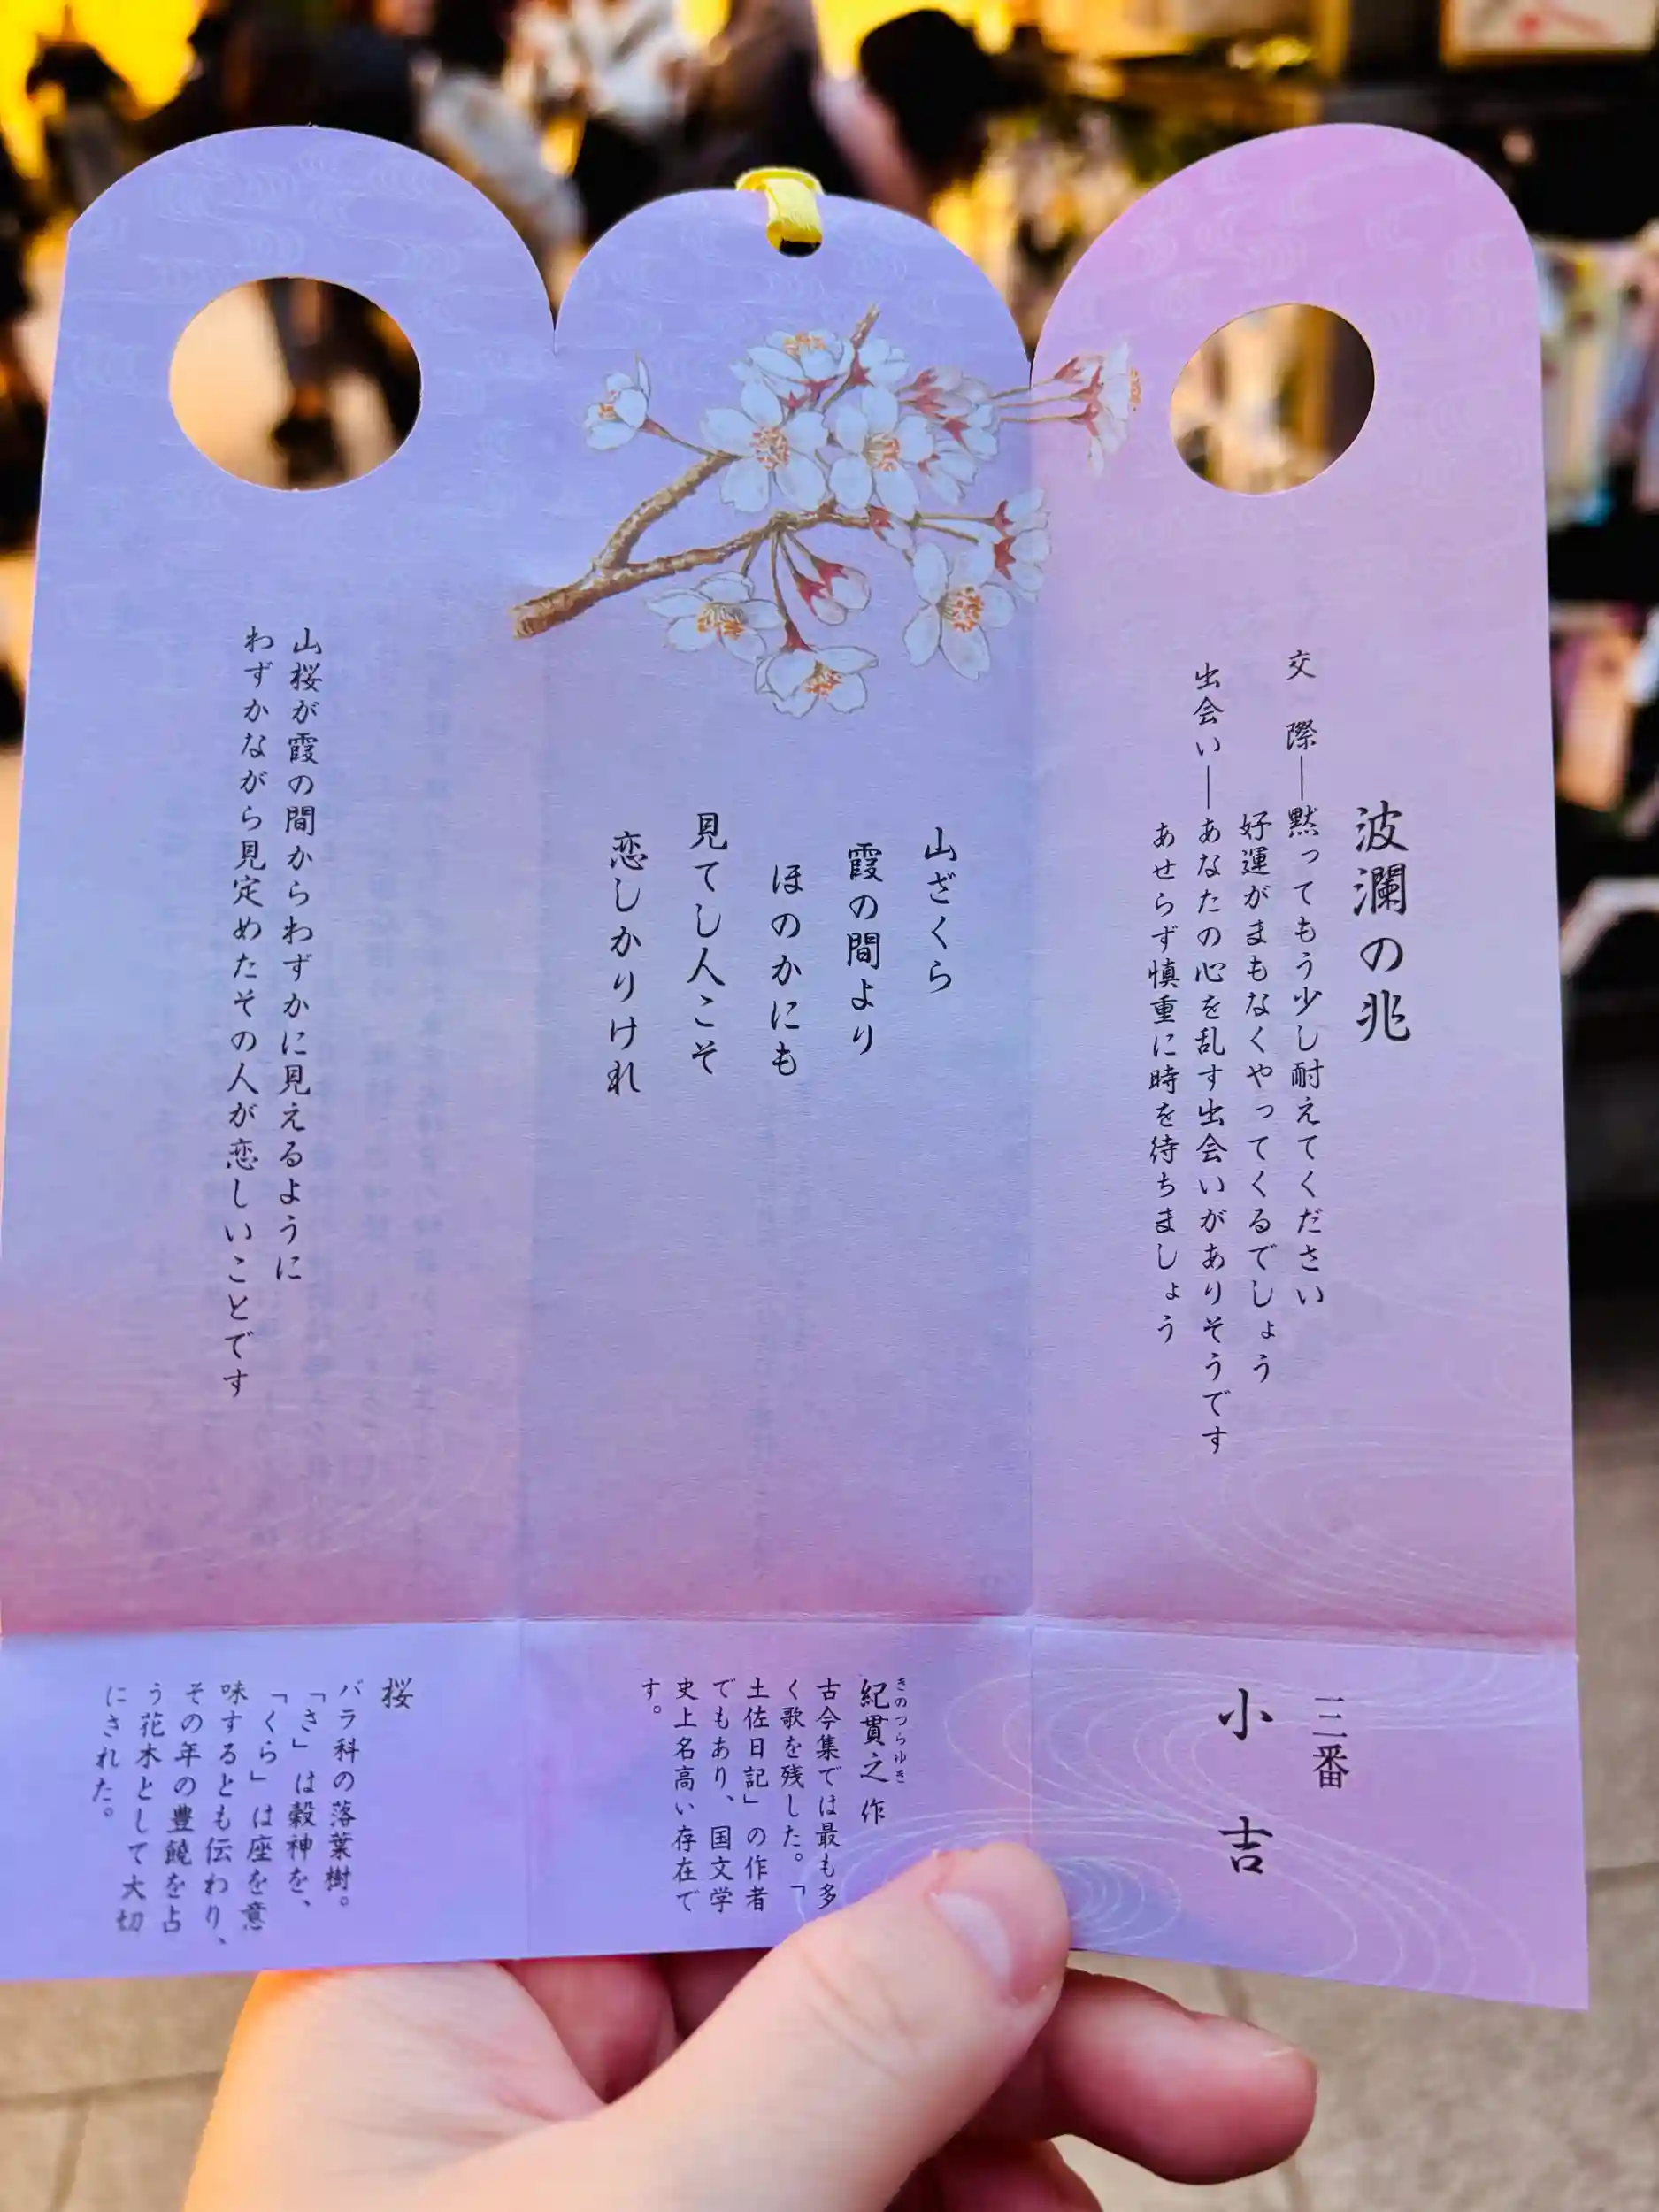 波瀾の兆
交 際―黙ってもう少し耐えてください
好運がまもなくやってくるでしょう
出会い―あなたの心を乱す出会いがありそうです
あせらず慎重に時を待ちましょう
山ざくら
霞の間より
ほのかにも
見てし人こそ
恋しかりけれ
山桜が霞の間からわずかに見えるように
わずかながら見定めたその人が恋しいことです
三番
小 吉
きのつらゆき
紀貫之 作
古今集では最も多
く歌を残した。「
土佐日記」の作者
でもあり、国文学
史上名高い存在で
す。
桜
バラ科の落葉樹。
「さ」は穀神を、
「くら」は座を意
味するとも伝わり、
その年の豊饒を占
う花木として大切
にされた。